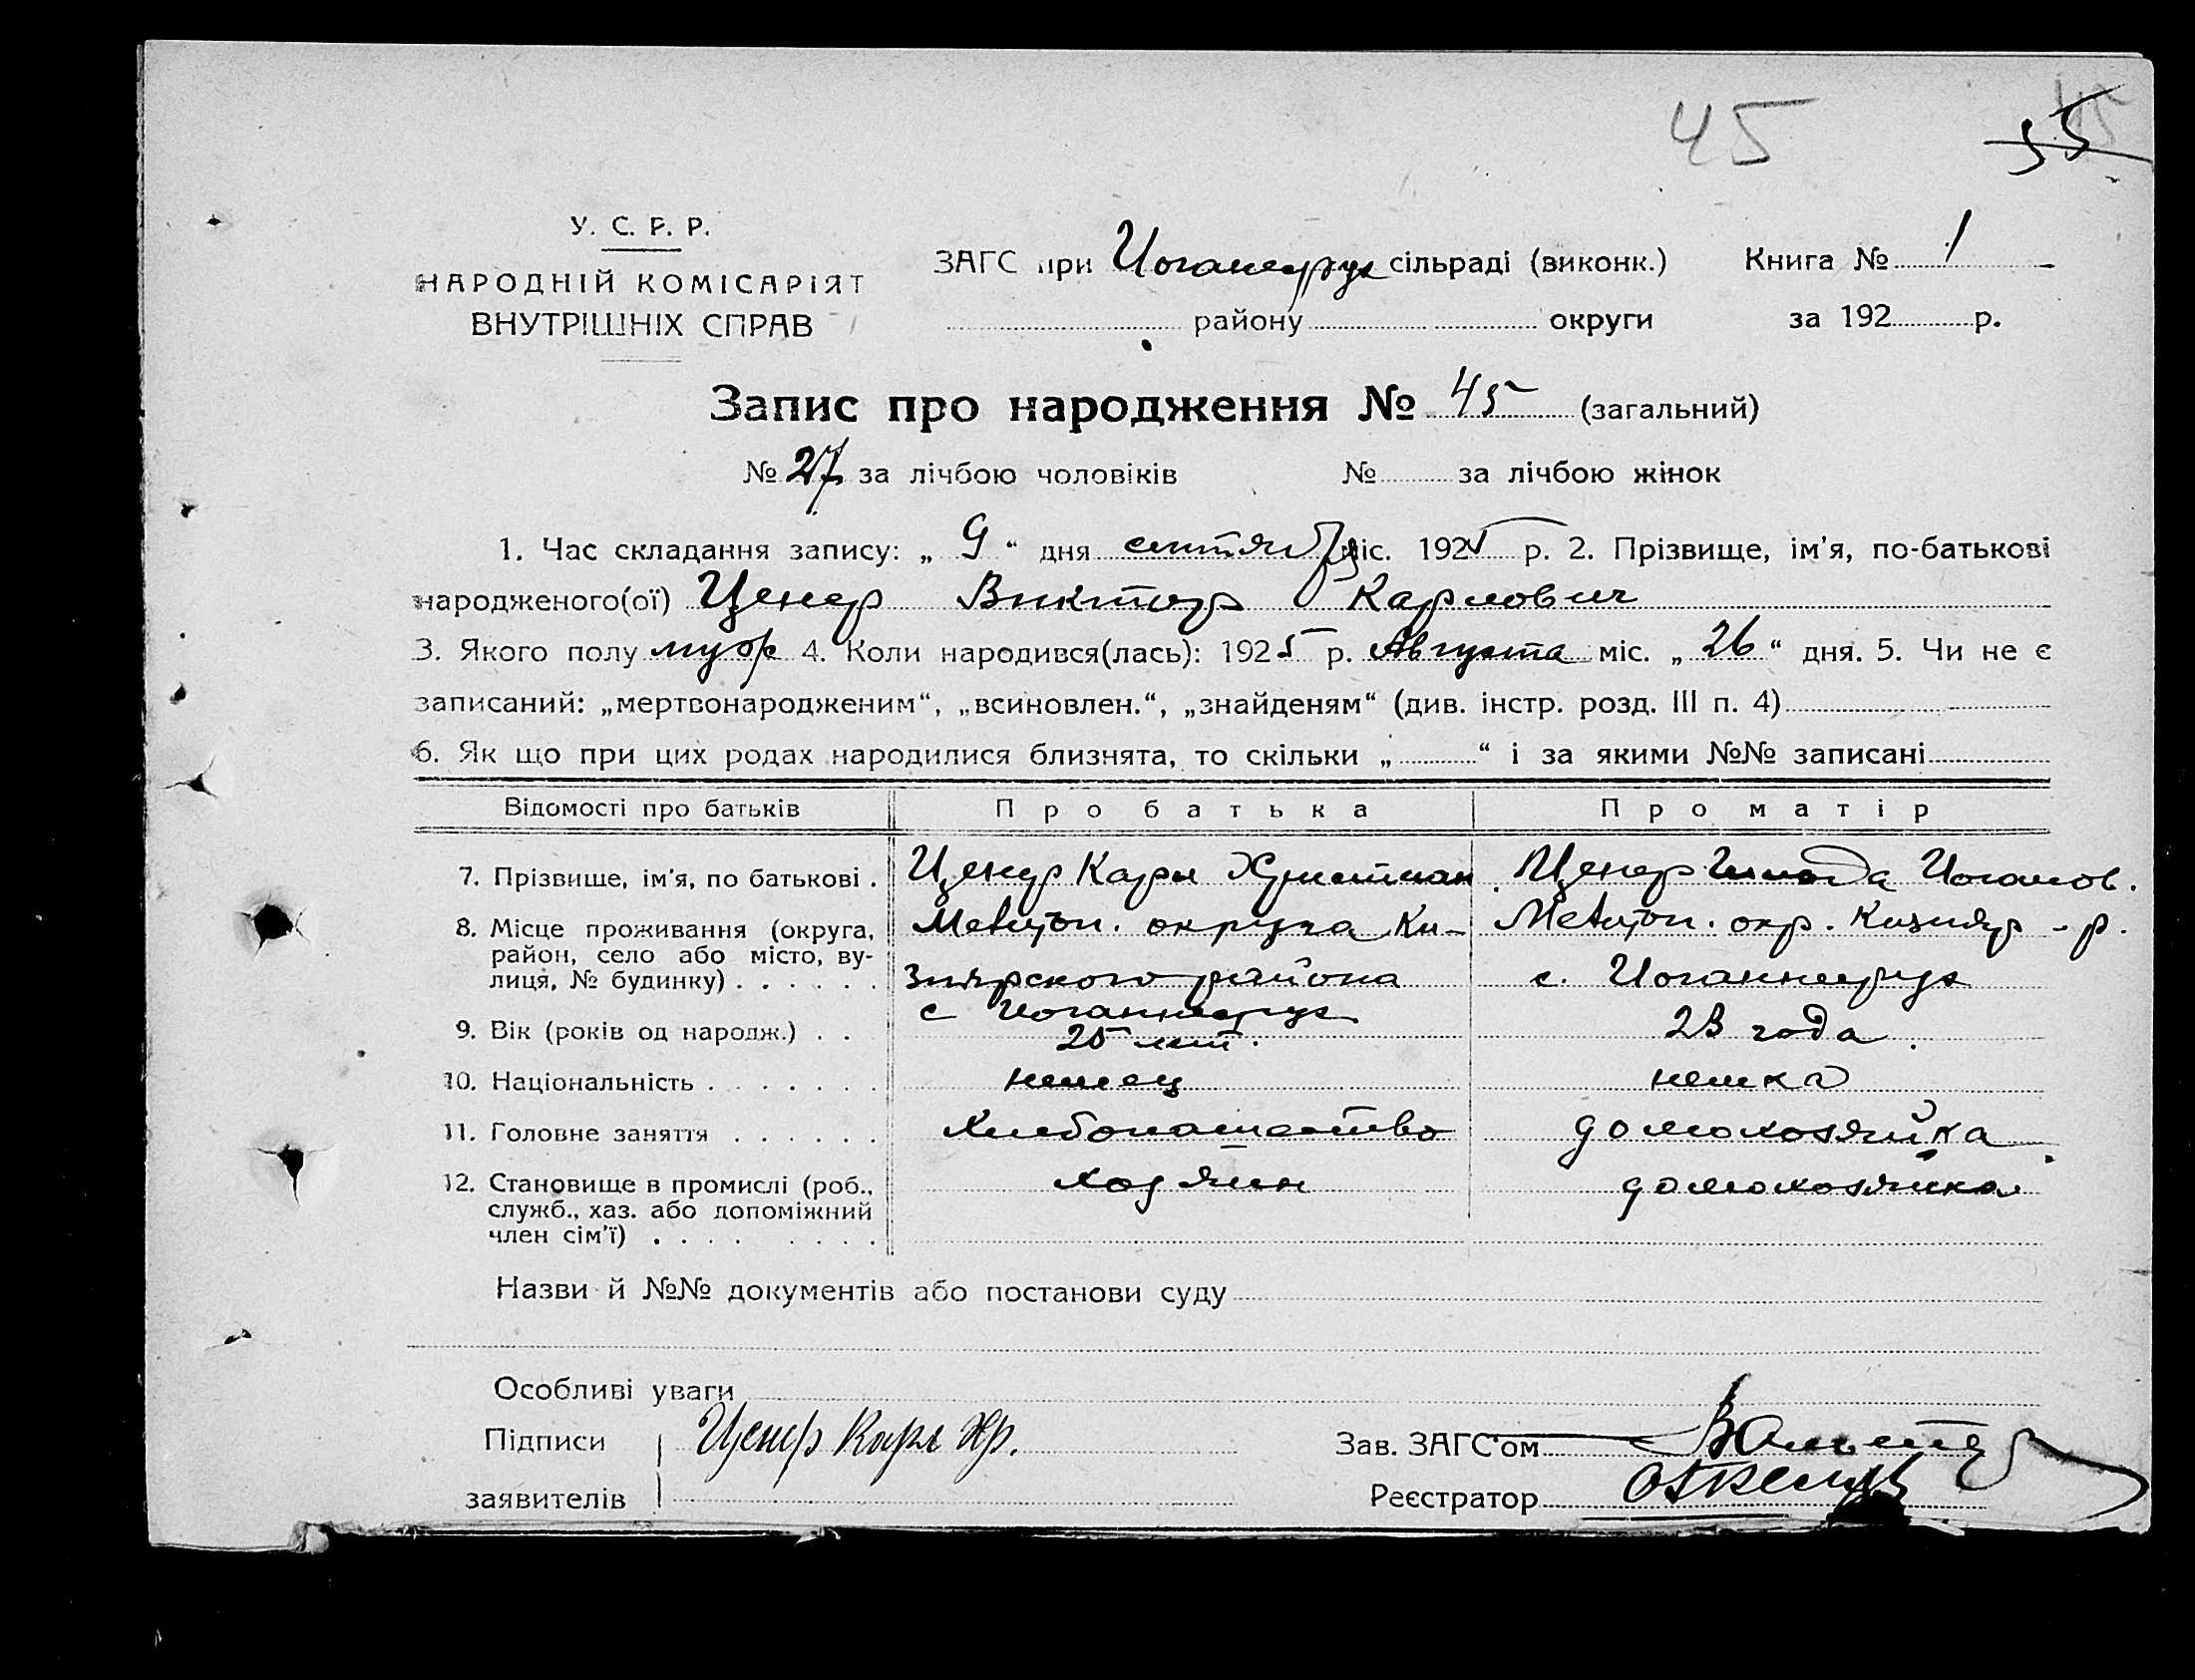 45
55
У. С. Р. Р.
НАРОДНІЙ КОМІСАРІЯТ
ВНУТРІШНІХ СПРАВ
ЗАГС при Иоганеруе сільраді (виконк.) Книга № 1
району округи за 192 р.
Запис про народження № 45 (загальний)
№ 27 за лічбою чоловіків № за лічбою жінок
1. Час складання запису: „ 9 “ дня сентября міс. 1925 р. 2. Прізвище, ім'я, по-батькові
народженого(ої) Ценер Виктор Карлович
3. Якого полу муж 4. Коли народився(лась): 1925 р. Августа міс. „ 26 “ дня. 5. Чи не є
записаний: „мертвонародженим“, „всиновлен.“, „знайденям“ (див. інстр. розд. III п. 4)
6. Як що при цих родах народилися близнята, то скільки „ “ і за якими №№ записані
Відомості про батьків Про батька Про матір
7. Прізвище, ім'я, по батькові . Ценер Карл Христиан Ценер Иоганов.
8. Місце проживання (округа, район, село або місто, вулиця, № будинку) . . . . . .
Мелитоп. округа Ки- Мелитоп. окр. Кизияр - р.
зиярского района с. Иоганнеруе
с Иоганнеруе
9. Вік (років од народж.) . . 25 лет. 23 года.
10. Національність . . . . . . . немец немка
11. Головне заняття . . . . . . Хлебопашество домохозяйка
12. Становище в промислі (роб., хозяин домохозяйка
служб., хаз. або допоміжний
член сім'ї) . . . . . . . .
Назви й №№ документів або постанови суду
Особливі уваги
Підписи Ценер Карл Хр. Зав. ЗАГС'ом
заявителів Реєстратор